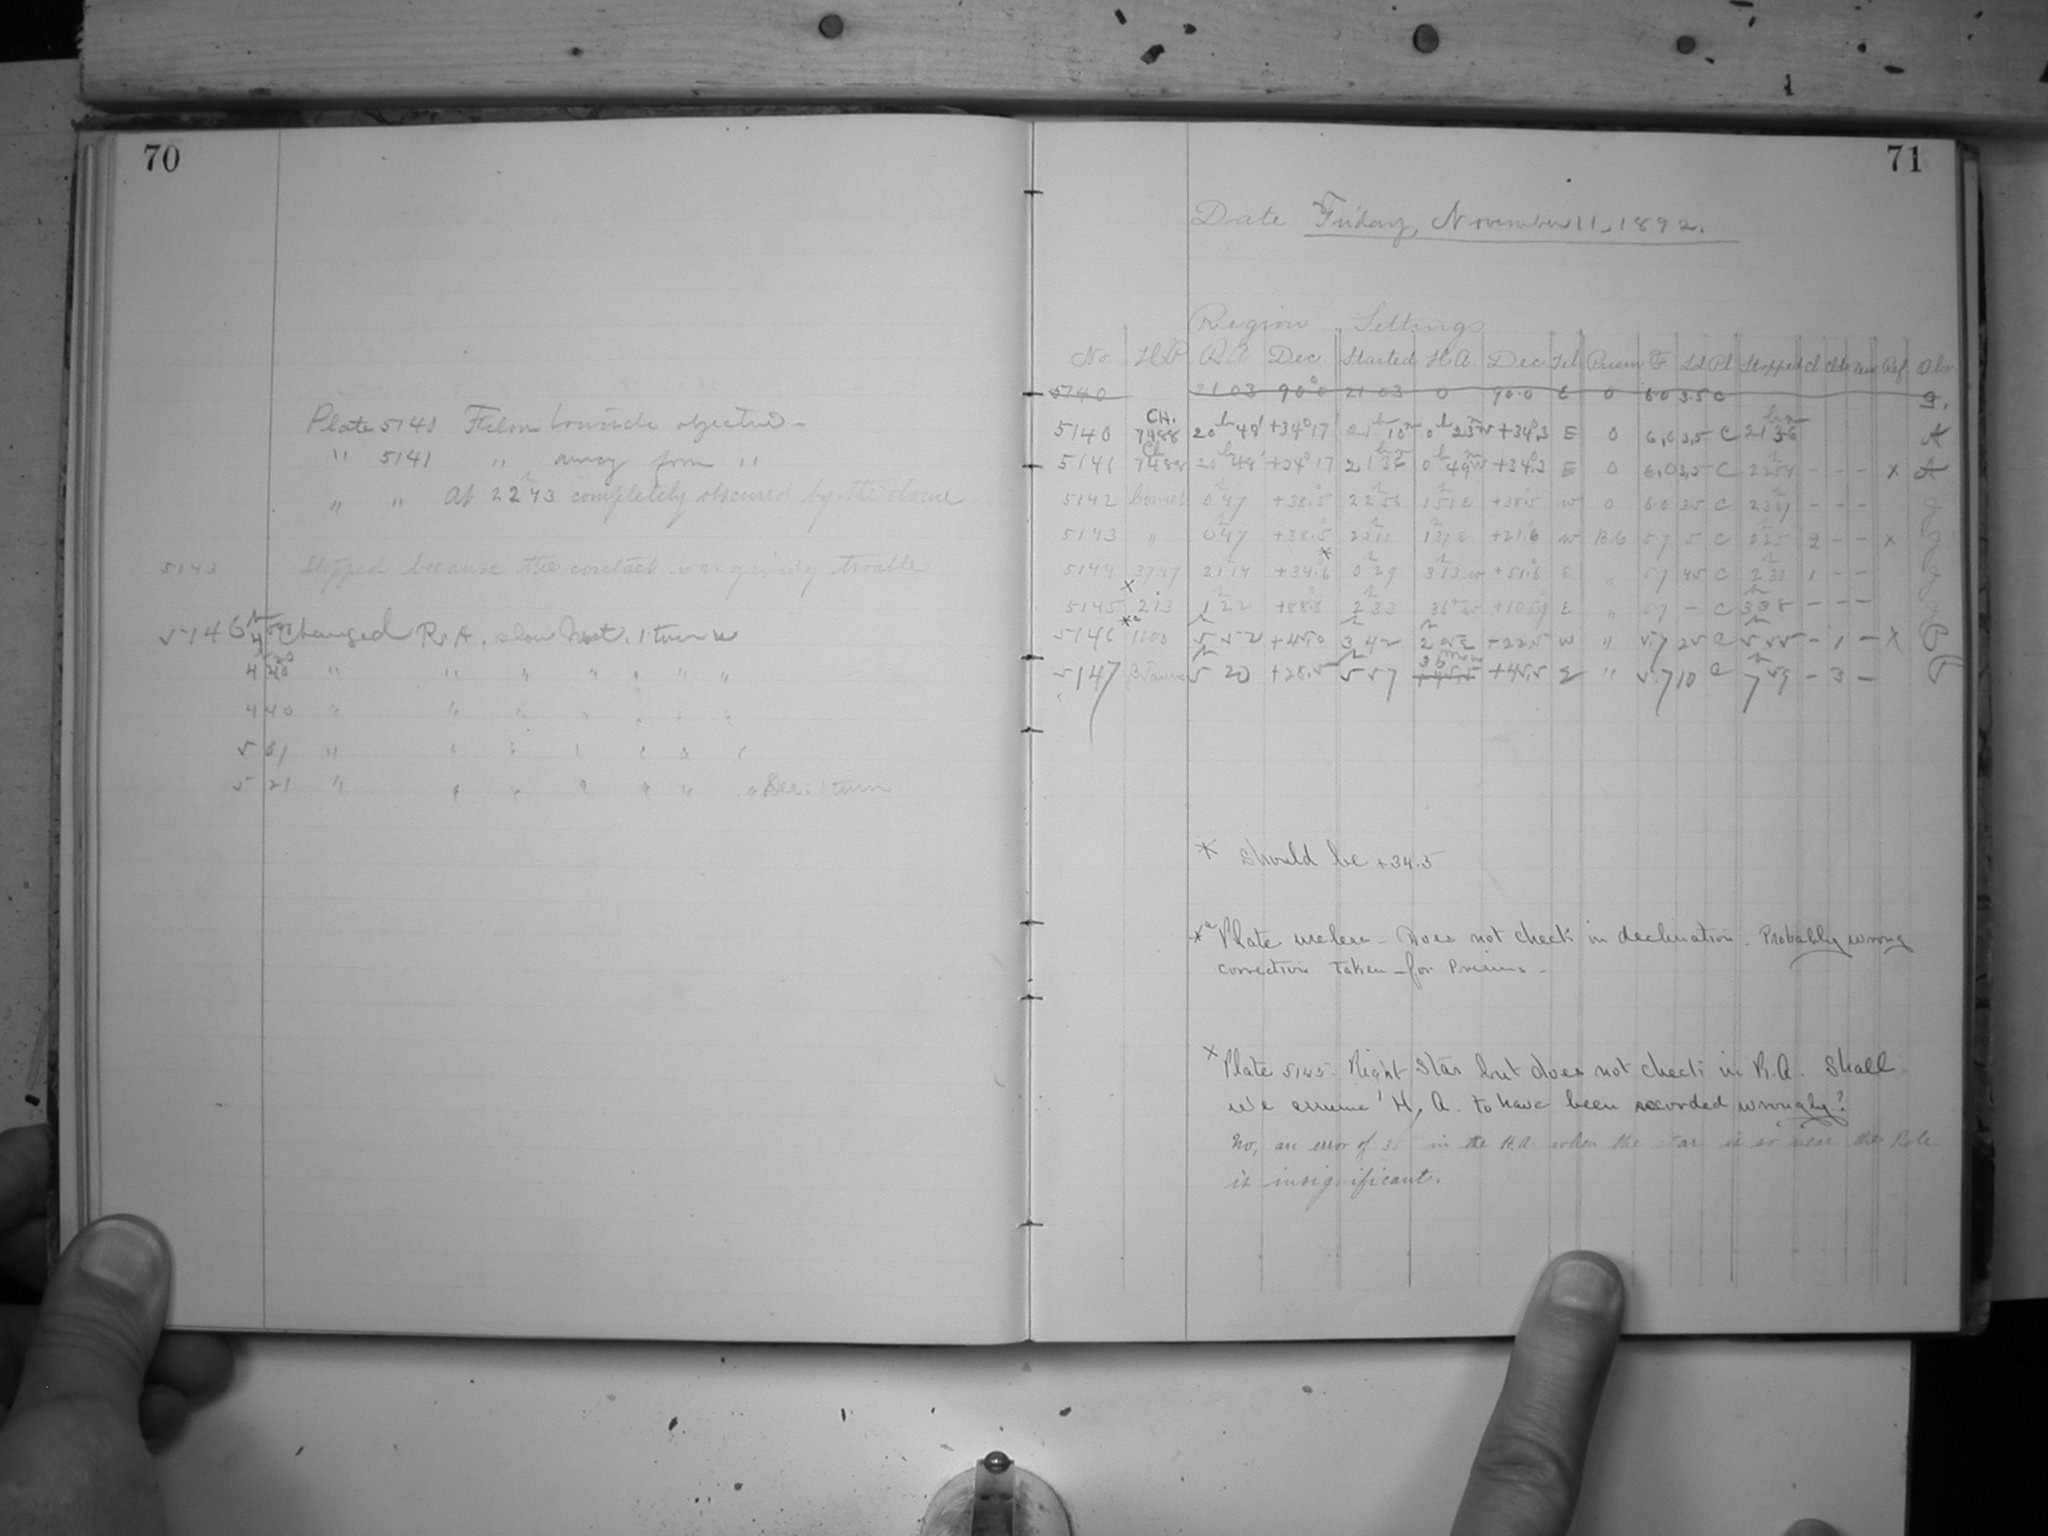 70
Plate 5140 Film towards objective -
" 5141 " away from "
" " At 22h43 completely obscured by the dome
5143 Stopped because the contact was giving trouble
5146 4 Changed R.A. slow Mot. 1 turn w
4 20 " " " " " " "
4 40 " " " " " " "
5 01 " " " " " " "
5 21 " " " " " " " Dec. 1 turn
71
Date Friday, November 11, 1892.
Region Settings
No. H.P. R A Dec. Started H A Dec Tel Prism F Ld Pl Stopped Cl Ref Obs
5140 21 03 90°0 21 03 0 90.0 E 0 6.0 3.5 C g.
5140 CH. 7488 20h48 +34°17 21h10m 0h23m w +34°.3 E 0 6.0 3.5 C 21h36m A
5141 Ch 7488 20h48 +34°17 21h38m 0h49m w +34°.3 E 0 6.0 3.5 C 22h54 - - - x A
5142 Comet 0h47 +38.5 22h58 1h51 E +38.5 w 0 6.0 3.5 C 23h07 - - - J
5143 " 0h47 +38°.5 23h11 1h37 E +21°.6 w B.C 5.7 5 C 0h25 2 - - x J
5144 3747 21h14 +34°.6* 0h29 3h13 w +51°.6 E " 5.7 45 C 2h30 1 - - J
5145 x 213 1h22 +88.8 2h33 36m w E " 5.7 - C 3h38 - - - J
5146 *a 1100 5h52 +45.0 3h42 2h05 E +22.5 w " 5.7 25 C 5h55 - 1 - x P
5147 β Tauri 5h20 +28.5 5h57 36m w +45.5 E " 5.7 10 C 7h59 - 3 - P
* Should be +34.5
*a Plate useless - Does not check in declination. Probably wrong
correction taken for Prism -
x Plate 5145. Right Star but does not check in R.A. Shall
we assume H, A. to have been recorded wrongly?
No, an error of in the H.A. when the star is so near the Pole
is insignificant.